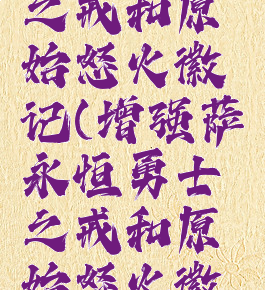 之戒和原
始怒火徽
记(增强萨
永恒勇士
之戒和原
始怒火徽